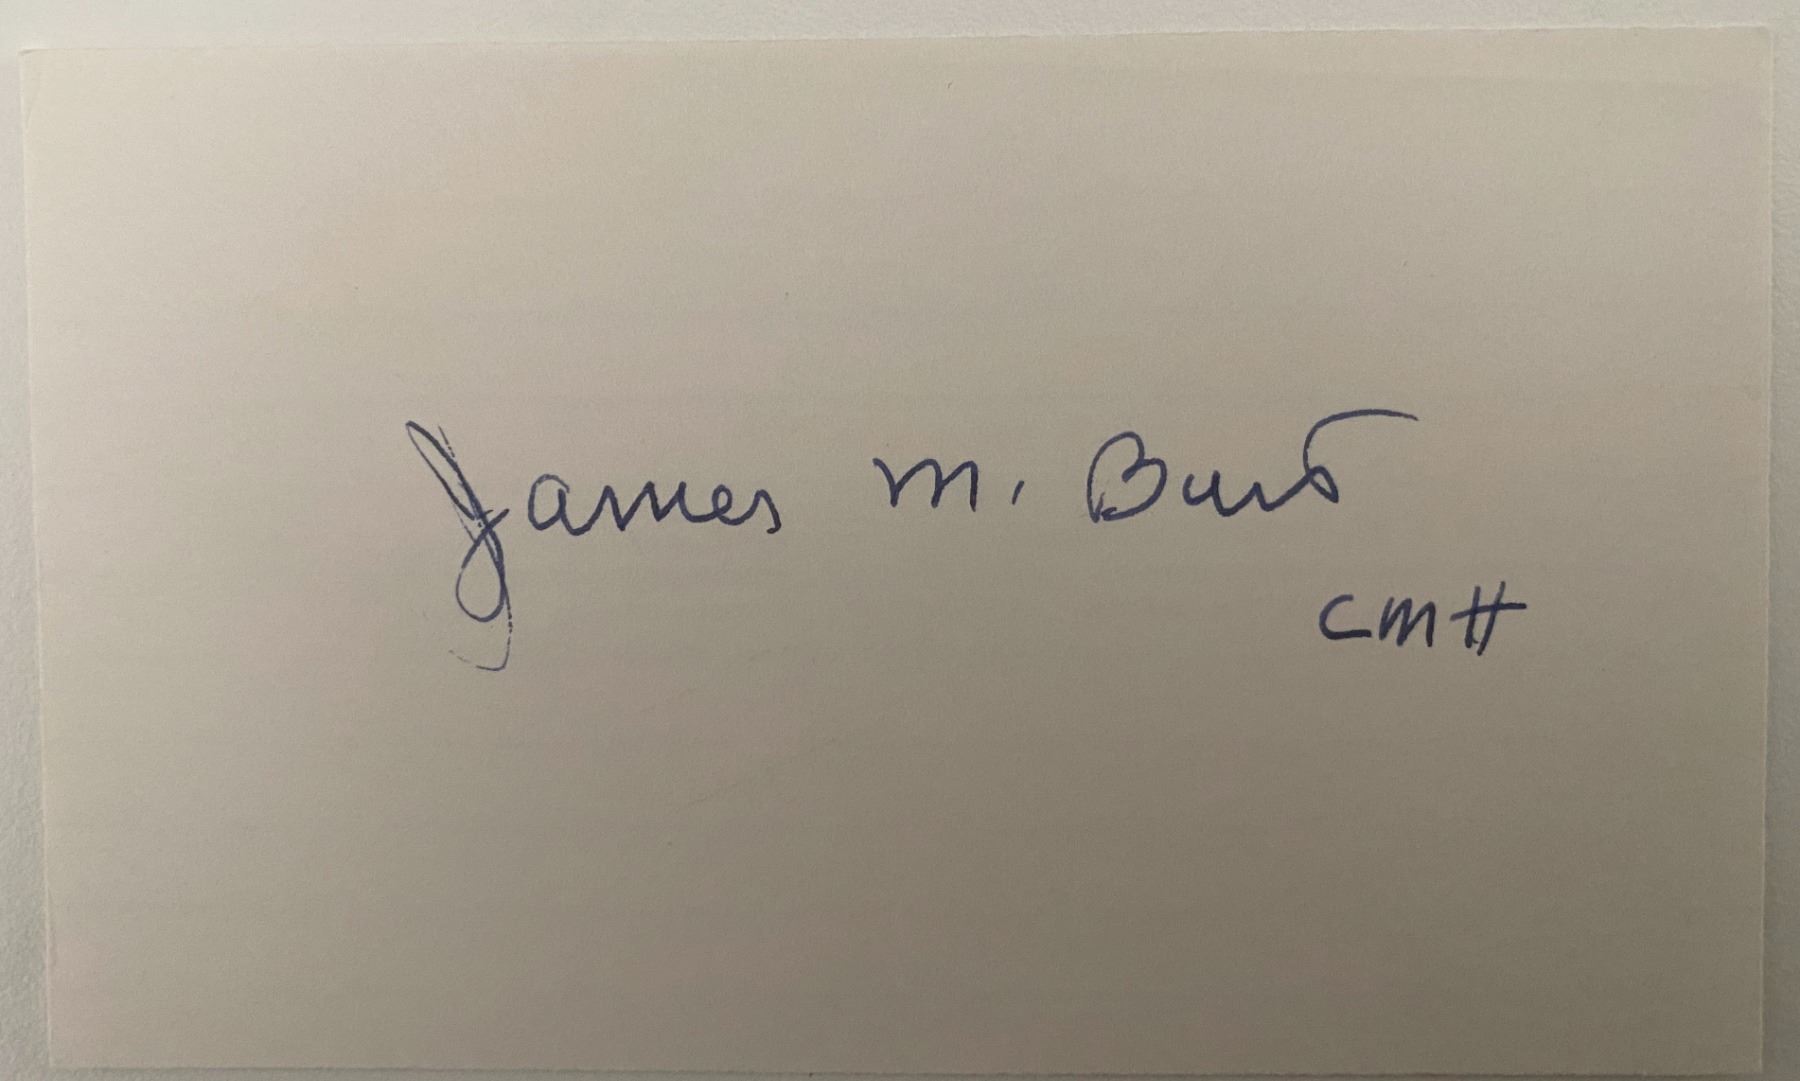 James M. Burt
CMH